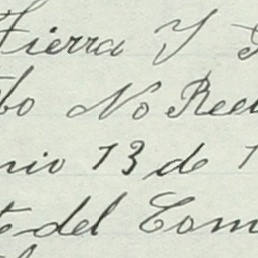 Tierra Y
No Ree
nio 13 de 1
te del Com